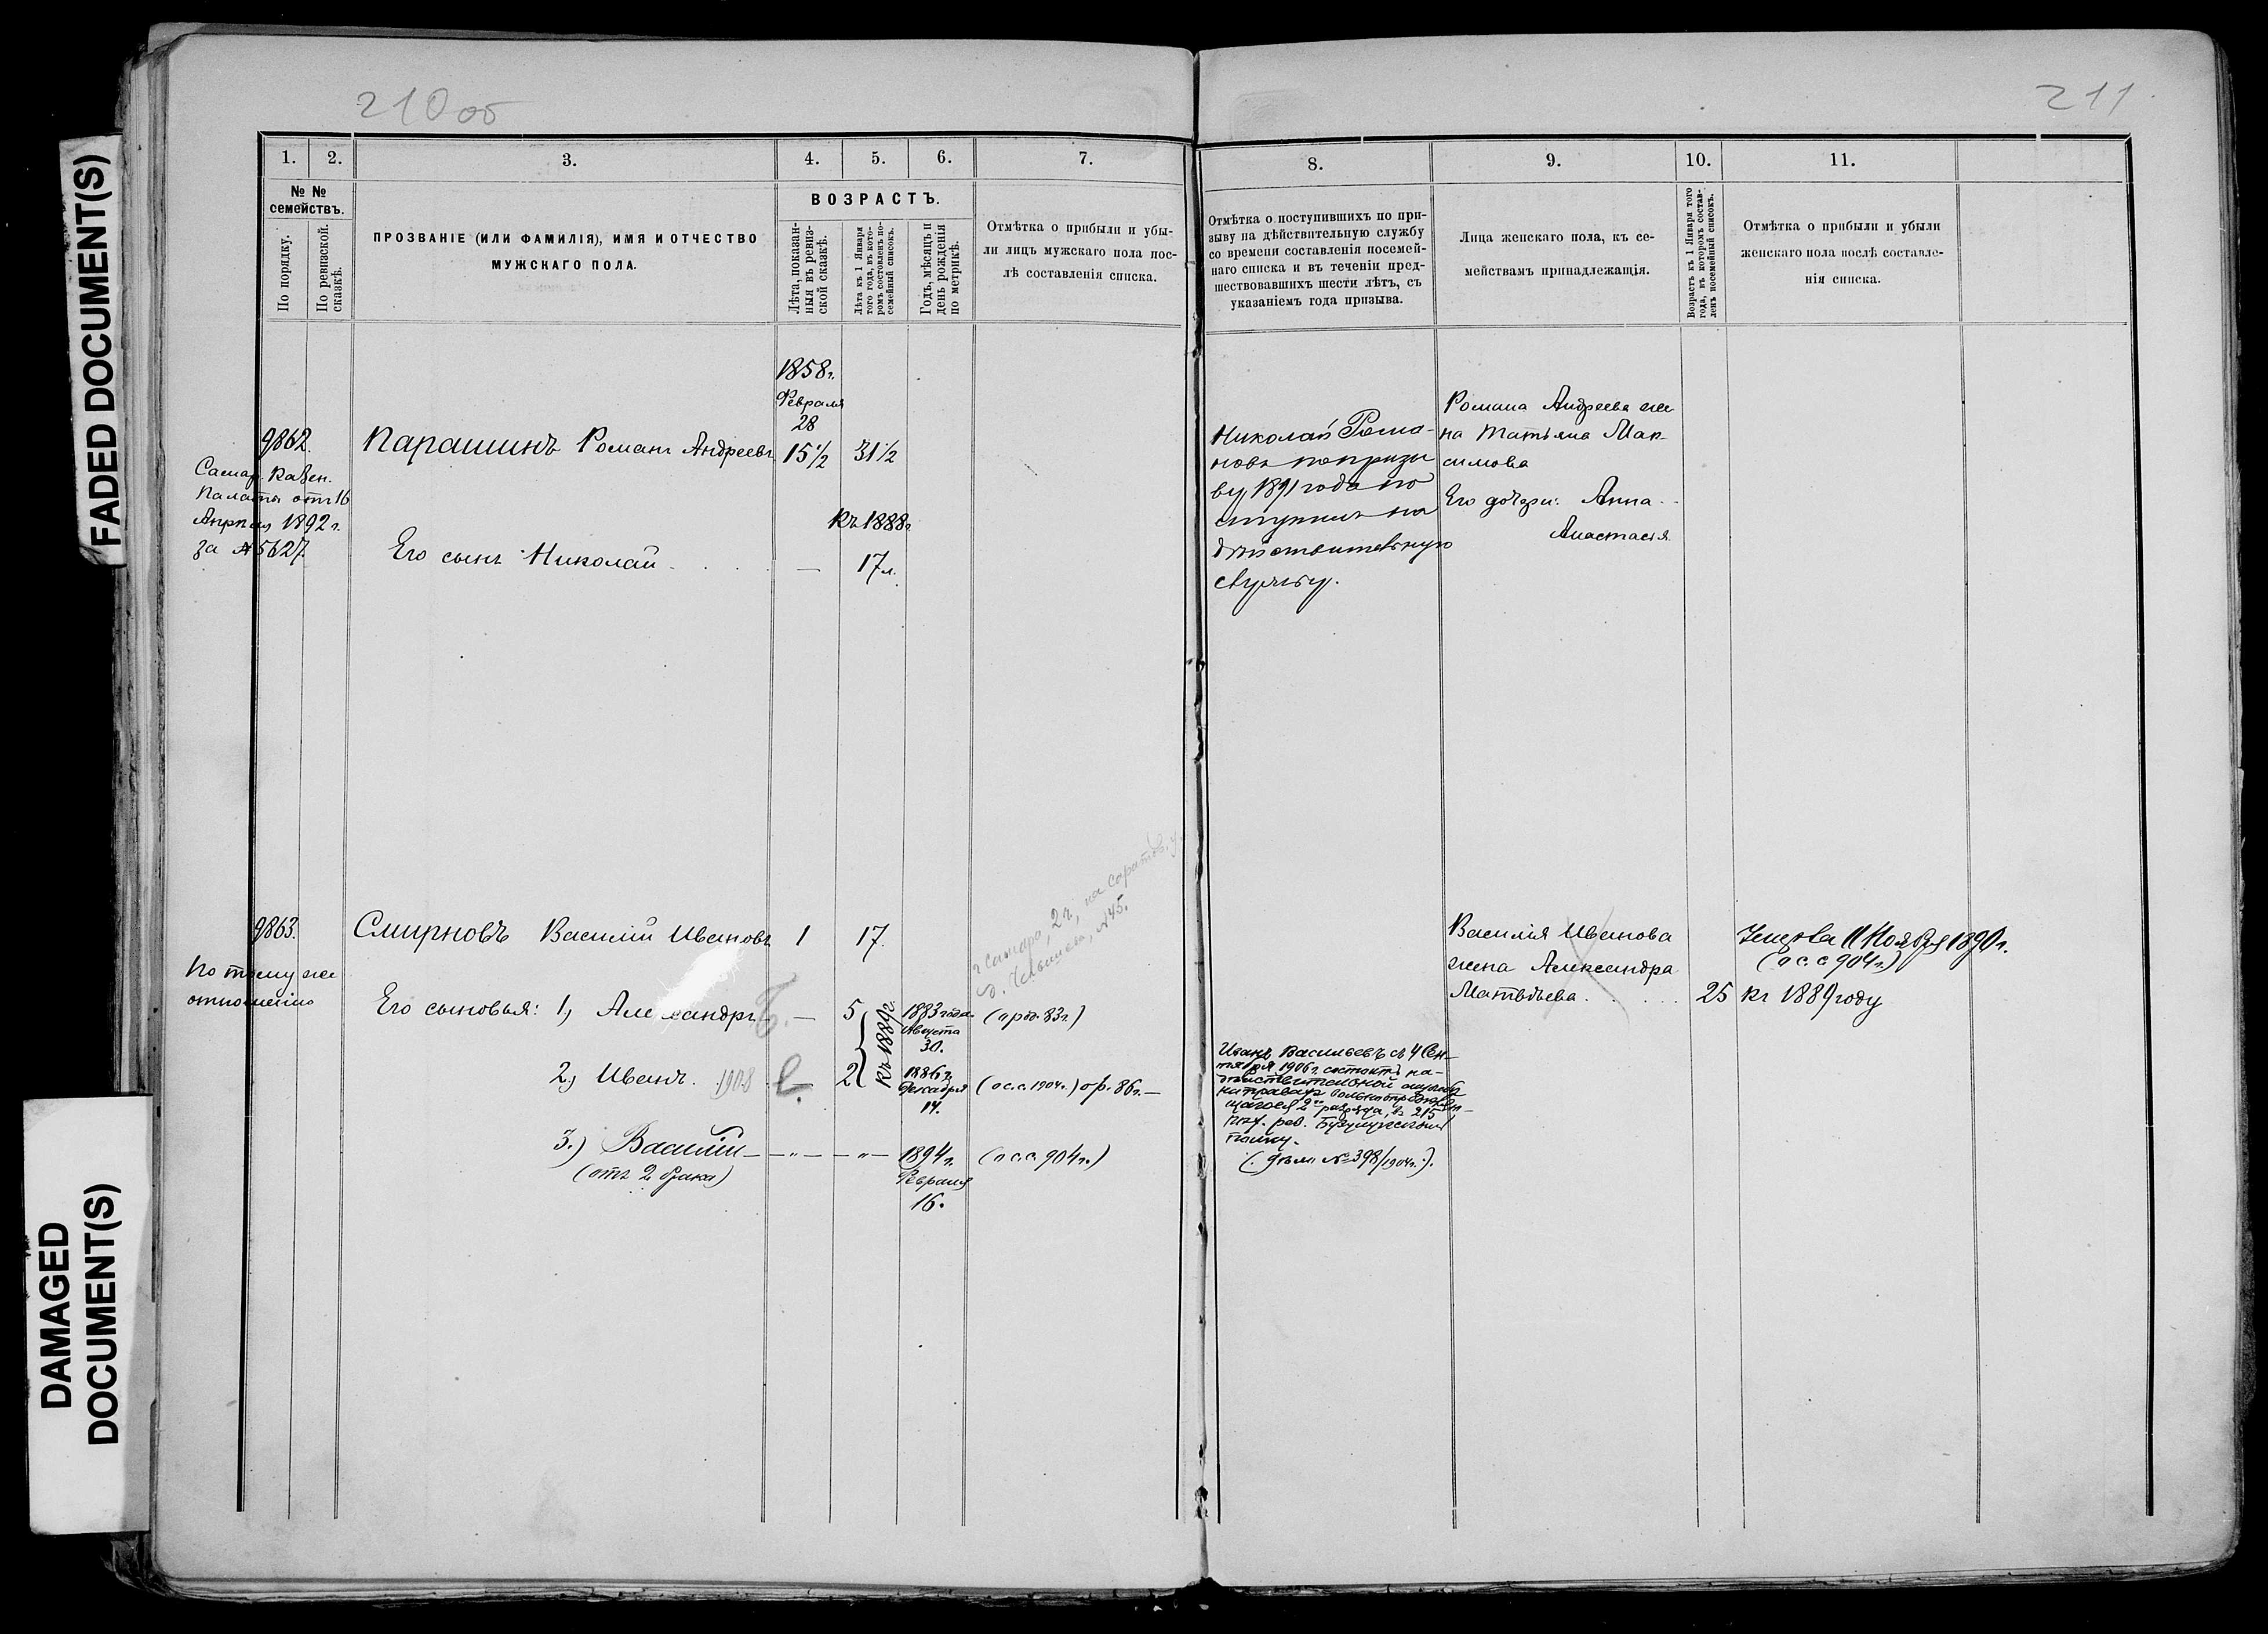 FADED DOCUMENT(S)
DAMAGED
DOCUMENT(S)
210 об
1.
2.
3.
4.
5.
6.
7.
№ №
семействъ.
По порядку.
По ревизской
сказкѣ.
ПРОЗВАНІЕ (ИЛИ ФАМИЛІЯ), ИМЯ И ОТЧЕСТВО
МУЖСКАГО ПОЛА.
ВОЗРАСТЪ.
Лѣта, показан-
ныя въ ревиз-
ской сказкѣ.
Лѣта къ 1 Января
того года, въ кото-
ромъ составленъ по-
семейный списокъ.
Годъ, мѣсяцъ и
день рожденія
по метрикѣ.
Отмѣтка о прибыли и убы-
ли лицъ мужскаго пола пос-
лѣ составленія списка.
1858 г.
Февраля
28
9862.
Парашинъ Романъ Андреевъ
15½
31½
Самар. Казен.
Палаты отъ 16
Апрѣля 1892 г.
за № 5627.
къ 1888 г.
Его сынъ Николай
—
17 л.
9863.
Смирновъ Василій Ивановъ
1
17.
По тому же
отношенію
г. Самара, 2 ч., на Саратов. у.
д. №45.
Его сыновья: 1, Александръ
—
5
къ 1889 г.
1883 года
Августа
30.
(пр.об. 83 г.)
2, Иванъ. 1908
—
2
1886 г.
Декабря
14.
(о с. с. 1904 г.) ор. 86 г. —
3.) Василій — „ — — „ —
1894 г.
(п с. с. 904 г.)
(отъ 2 брака)
Февраля
16.
211
8.
9.
10.
11.
Отмѣтка о поступившихъ по при-
зыву на дѣйствительную службу
со времени составленія посемей-
наго списка и въ теченіи пред-
шествовавшихъ шести лѣтъ, съ
указаніемъ года призыва.
Лица женскаго пола, къ се-
мействамъ принадлежащія.
Возрастъ къ 1 Января того
года, въ которомъ состав-
ленъ посемейный списокъ.
Отмѣтка о прибыли и убыли
женскаго пола послѣ составле-
нія списка.
Николай Рома-
новъ по призы
ву 1891 года по
ступилъ на
дѣйствительную
службу.
Романа Андреева же
на Татьяна Мак-
симова
Его дочери: Анна
Анастасія
Василія Иванова
жена Александра
Матвѣева.
25
Умерла 11 Ноября 1890 г.
(п с. с. 904 г.)
къ 1889 году
Иванъ Васильевъ съ 4 Сен-
тября 1906 г. состоитъ на
дѣйствительной службѣ
на правахъ вольноопредѣляю-
щагося 2го разряда, въ 215
пѣх. рез. Бузулукскомъ
полку.
(. дѣло № 398/1904 г. .).